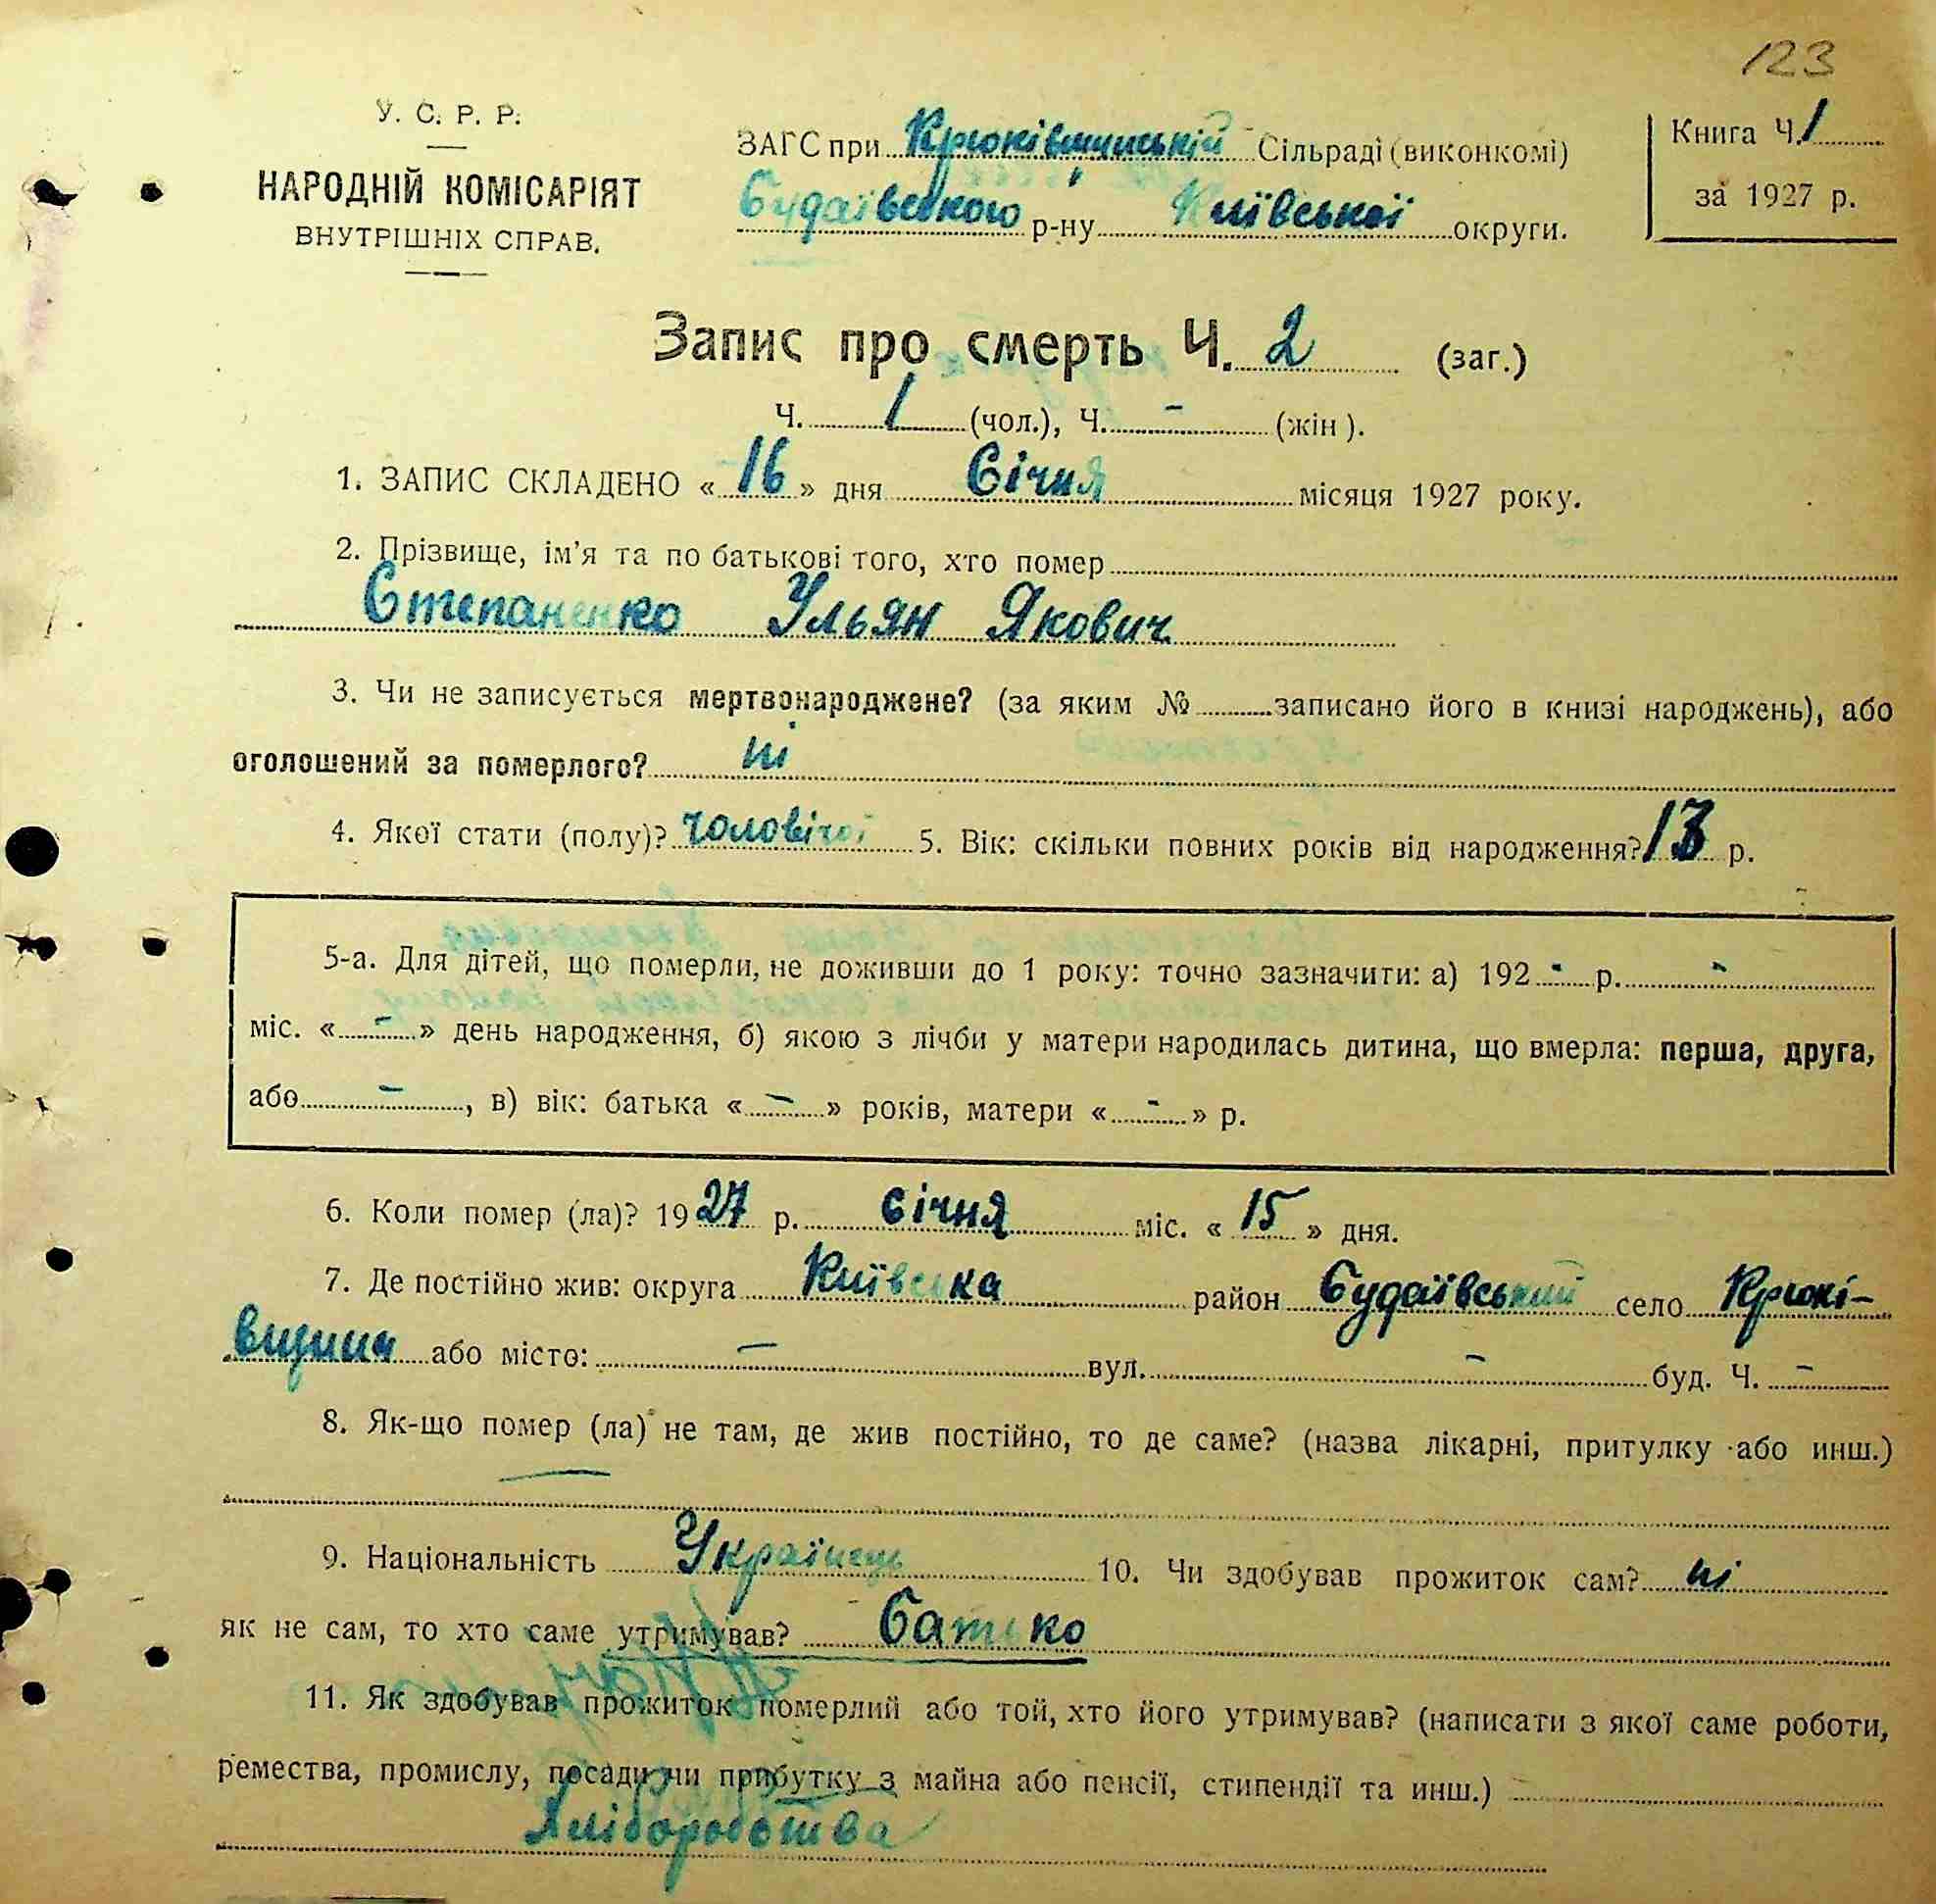 123
У. С. Р. Р.
НАРОДНІЙ КОМІСАРІЯТ
ВНУТРІШНІХ СПРАВ.
ЗАГС при Крюківщинській Сільраді (виконкомі)
Будаївського р-ну Київської округи.
Книга Ч. 1
за 1927 р.
Запис про смерть Ч. 2 (заг.)
Ч. 1 (чол.), Ч. - (жін).
1. ЗАПИС СКЛАДЕНО « 16 » дня Січня місяця 1927 року.
2. Прізвище, ім'я та по батькові того, хто помер
Степаненко Ульян Якович
3. Чи не записується мертвонароджене? (за яким № записано його в книзі народжень), або
оголошений за померлого? ні
4. Якої стати (полу)? чоловічої 5. Вік: скільки повних років від народження? 13 р.
5-а. Для дітей, що померли, не доживши до 1 року: точно зазначити: а) 192 - р. -
міс. « - » день народження, б) якою з лічби у матери народилась дитина, що вмерла: перша, друга,
або - , в) вік: батька « - » років, матери « - » р.
6. Коли помер (ла)? 1927 р. січня міс. « 15 » дня.
7. Де постійно жив: округа Київська район Будаївський село Крюкі-
вщина або місто: - вул. - буд. Ч. -
8. Як-що помер (ла) не там, де жив постійно, то де саме? (назва лікарні, притулку або инш.)
—
9. Національність Українець 10. Чи здобував прожиток сам? ні
як не сам, то хто саме утримував? батько
11. Як здобував прожиток померлий або той, хто його утримував? (написати з якої саме роботи,
ремества, промислу, посади чи прибутку з майна або пенсії, стипендії та инш.)
Хліборобства